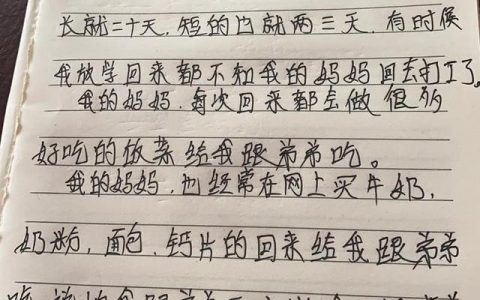 长就二十天，短的也就两三天，有时候
我放学回来都不知我的妈妈回去打工了。
我的妈妈，每次回来都会做很多
好吃的饭菜给我跟弟弟吃。
我的妈妈，也经常在网上买牛奶，
奶粉，面包，钙片的回来给我跟弟弟